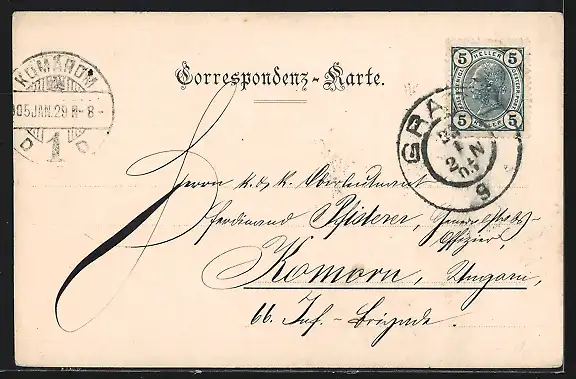 KOMÁROM
905 JAN. 29 N - 8 -
1
Correspondenz-Karte.
5 HELLER 5
5 HELLER 5
GRAZ
Herrn k. & k. Oberleutnant
Ferdinand Pfisterer, Generalstabs-
Offizier,
Komorn, Ungarn,
66. Inf.-Brigade.